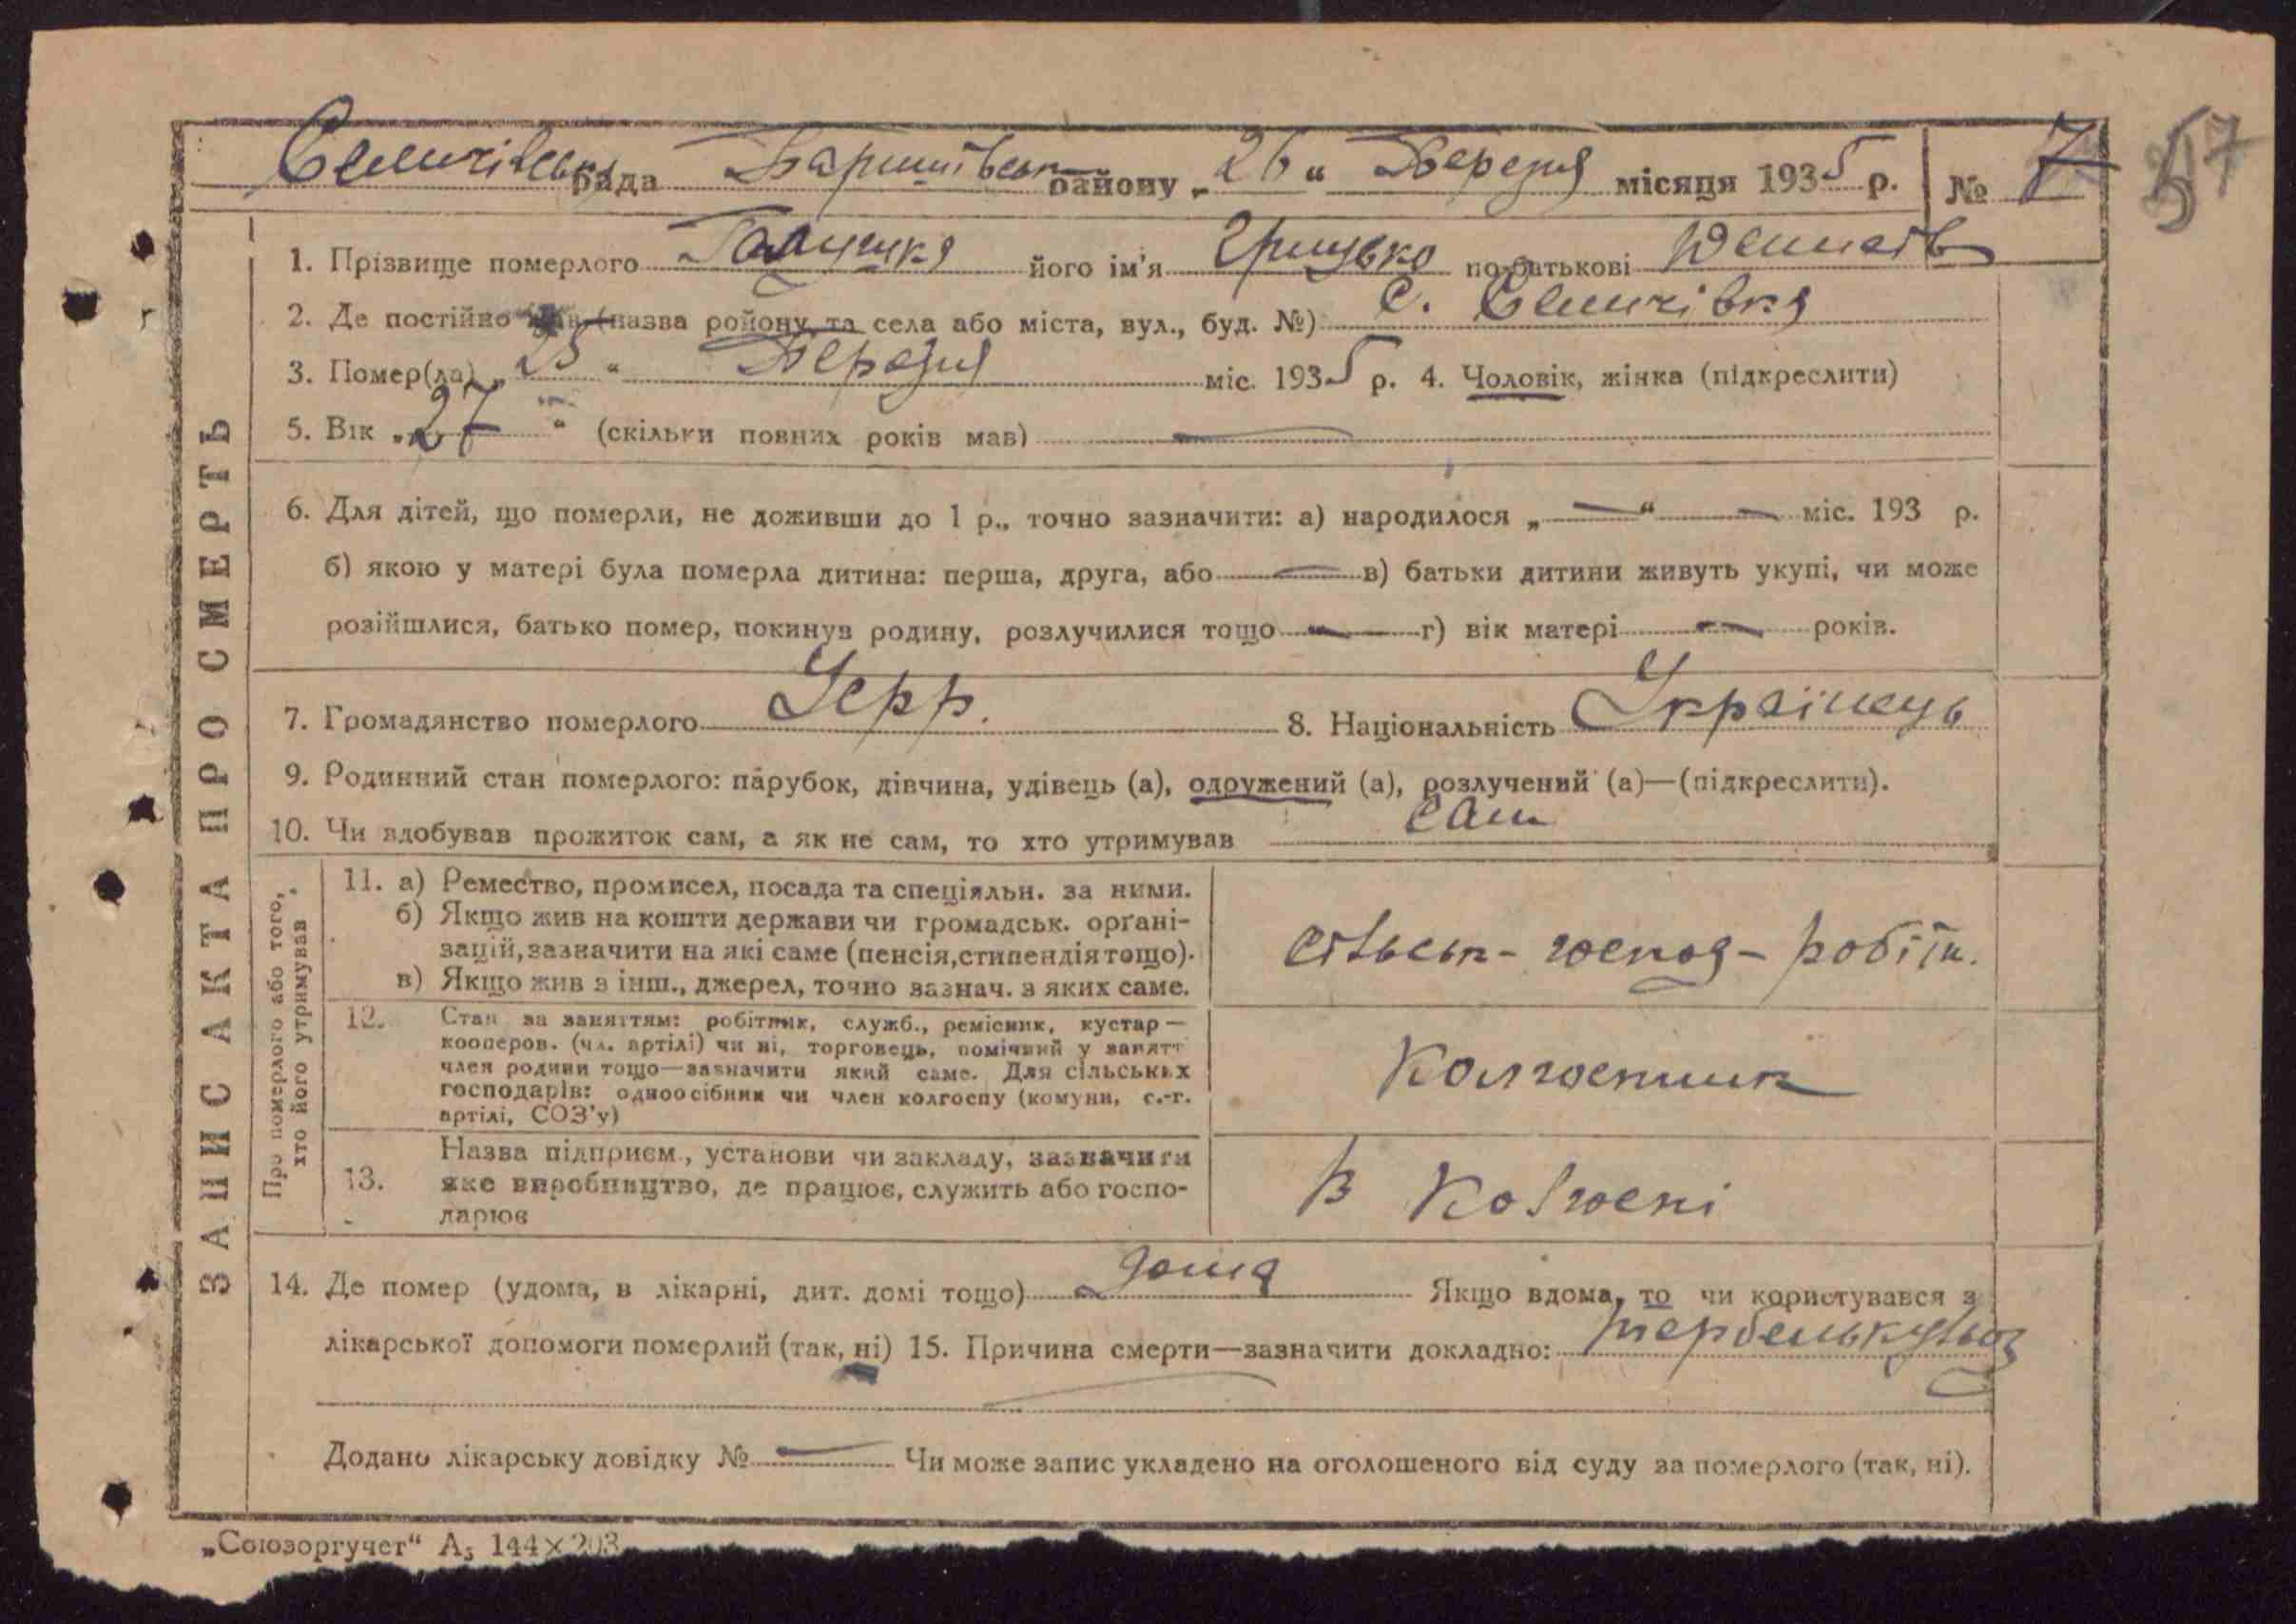 Селичівська рада Баришівськ району „26“ Березня місяця 1935 р. № 7
57
1. Прізвище померлого Галушка його ім'я Грицько по батькові
2. Де постійно жив (назва району та села або міста, вул., буд. №) с. Селичівка
3. Помер(ла) „25“ Березня міс. 1935 р. 4. Чоловік, жінка (підкреслити)
5. Вік „27“ (скільки повних років мав) —
6. Для дітей, що померли, не доживши до 1 р., точно зазначити: а) народилося „—“ — міс. 193 р.
б) якою у матері була померла дитина: перша, друга, або — в) батьки дитини живуть укупі, чи може
розійшлися, батько помер, покинув родину, розлучилися тощо — г) вік матері — років.
7. Громадянство померлого Усрр. 8. Національність Українець
9. Родинний стан померлого: парубок, дівчина, удівець (а), одружений (а), розлучений (а)—(підкреслити).
10. Чи вдобував прожиток сам, а як не сам, то хто утримував сам
ЗАПИС АКТА ПРО СМЕРТЬ
Про померлого або того, хто його утримував
11. а) Ремество, промисел, посада та спеціяльн. за ними.
б) Якщо жив на кошти держави чи громадськ. орґані-
зацій, зазначити на які саме (пенсія, стипендія тощо).
в) Якщо жив з інш., джерел, точно зазнач. з яких саме.
сільськ-господ-робітн.
12. Стан за заняттям: робітник, служб., ремісник, кустар —
кооперов. (чл. артілі) чи ні, торговець, помічний у занятт
член родини тощо—зазначити який саме. Для сільських
господарів: одноосібник чи член колгоспу (комуни, с.-г.
артілі, СОЗ'у)
Колгоспник
13. Назва підприєм., установи чи закладу, зазначити
яке виробництво, де працює, служить або госпо-
дарює
в Колгоспі
14. Де помер (удома, в лікарні, дит. домі тощо) дома Якщо вдома, то чи користувався з
лікарської допомоги померлий (так, ні) 15. Причина смерти—зазначити докладно:
Додано лікарську довідку № — Чи може запис укладено на оголошеного від суду за померлого (так, ні).
„Союзоргучет“ А5 144×203